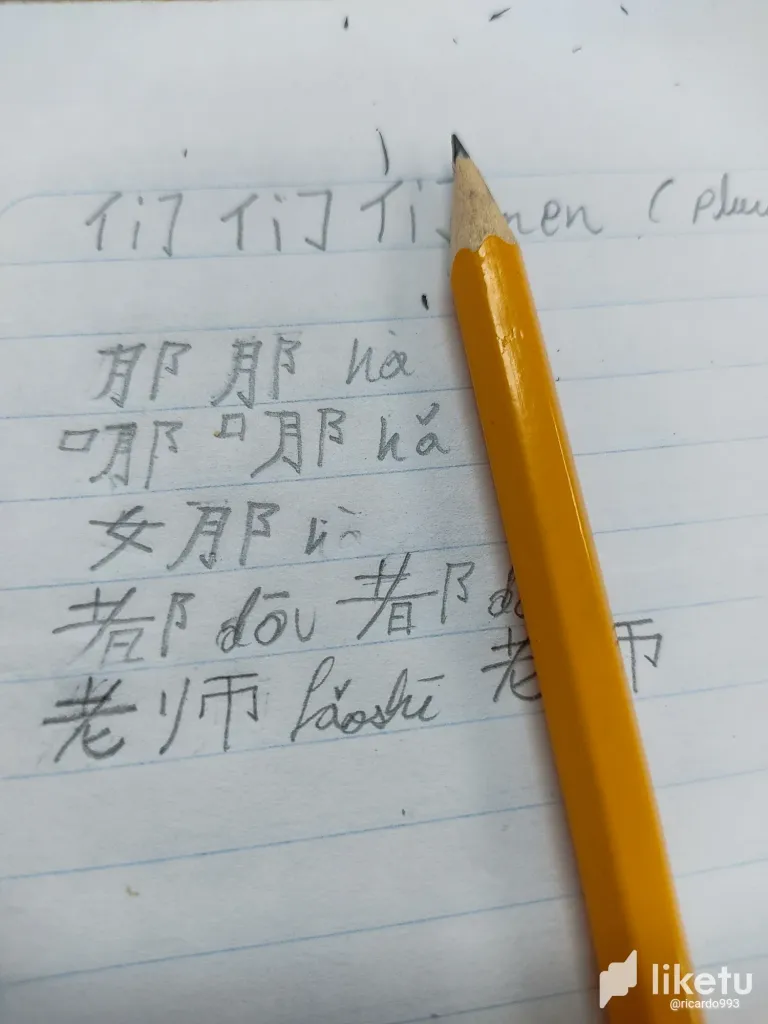 们 们 们 men (
那 那 nà
哪 哪 nǎ
女那
都 dōu 都
老师 lǎoshī 老师
liketu
@ricardo993